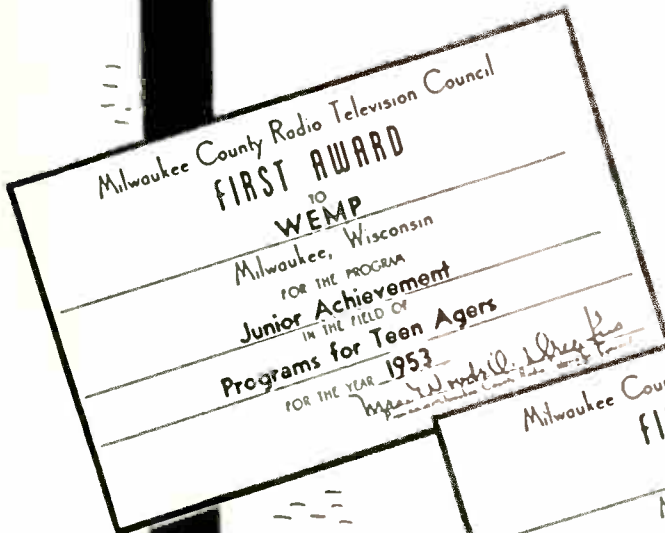 Milwaukee County Radio Television Council
FIRST AWARD
TO
WEMP
Milwaukee, Wisconsin
FOR THE PROGRAM
Junior Achievement
IN THE FIELD OF
Programs for Teen Agers
FOR THE YEAR 1953
Milwaukee Cou
FI